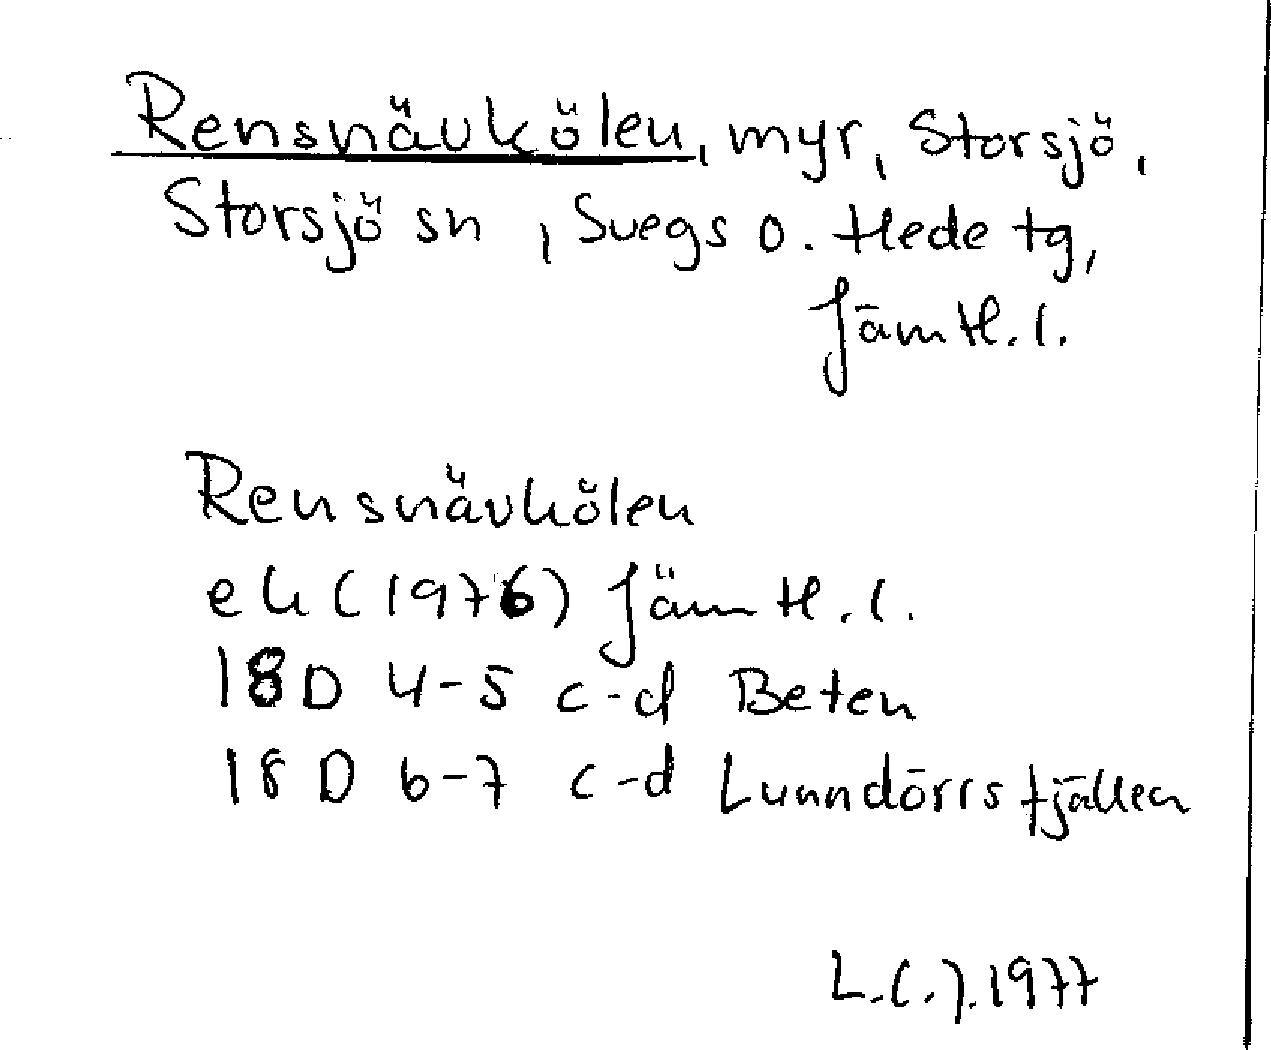 Rensnävkölen, myr, Storsjö,
Storsjö sn, Svegs o. Hede tg,
Jämtl. l.
Rensnävkölen
ek (1976) Jämtl. l.
18 D 4-5 c-d Beten
18 D 6-7 c-d Lunndörrsfjällen
L.C.J. 1977